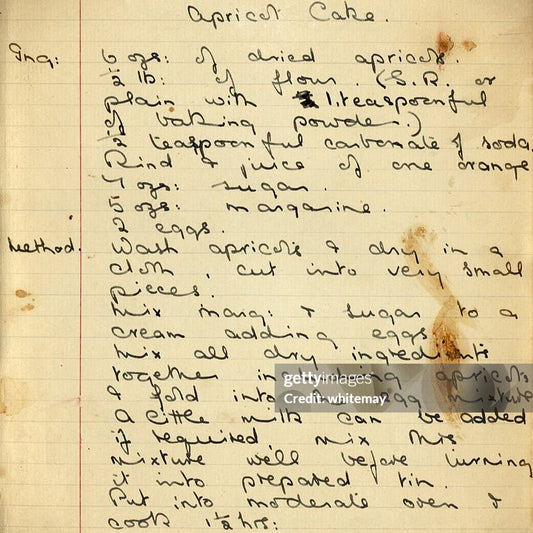 Apricot Cake.
Ing: 6 ozs: of dried apricots.
½ lb: of flour. (S.R. or
plain with 1.teaspoonful
of baking powder.)
½ teaspoonful carbonate of soda.
Rind & juice of one orange
4 ozs: sugar.
5 ozs: margarine.
2 eggs.
Method. Wash apricots & dry in a
cloth, cut into very small
pieces.
Mix marg: & sugar to a
cream adding eggs
Mix all dry ingredients
together including apricots
& fold into egg mixture
A little milk can be added
if required, mix this
mixture well before turning
it into prepared tin.
Put into moderate oven &
cook 1½ hrs:
gettyimages
Credit: whitemay